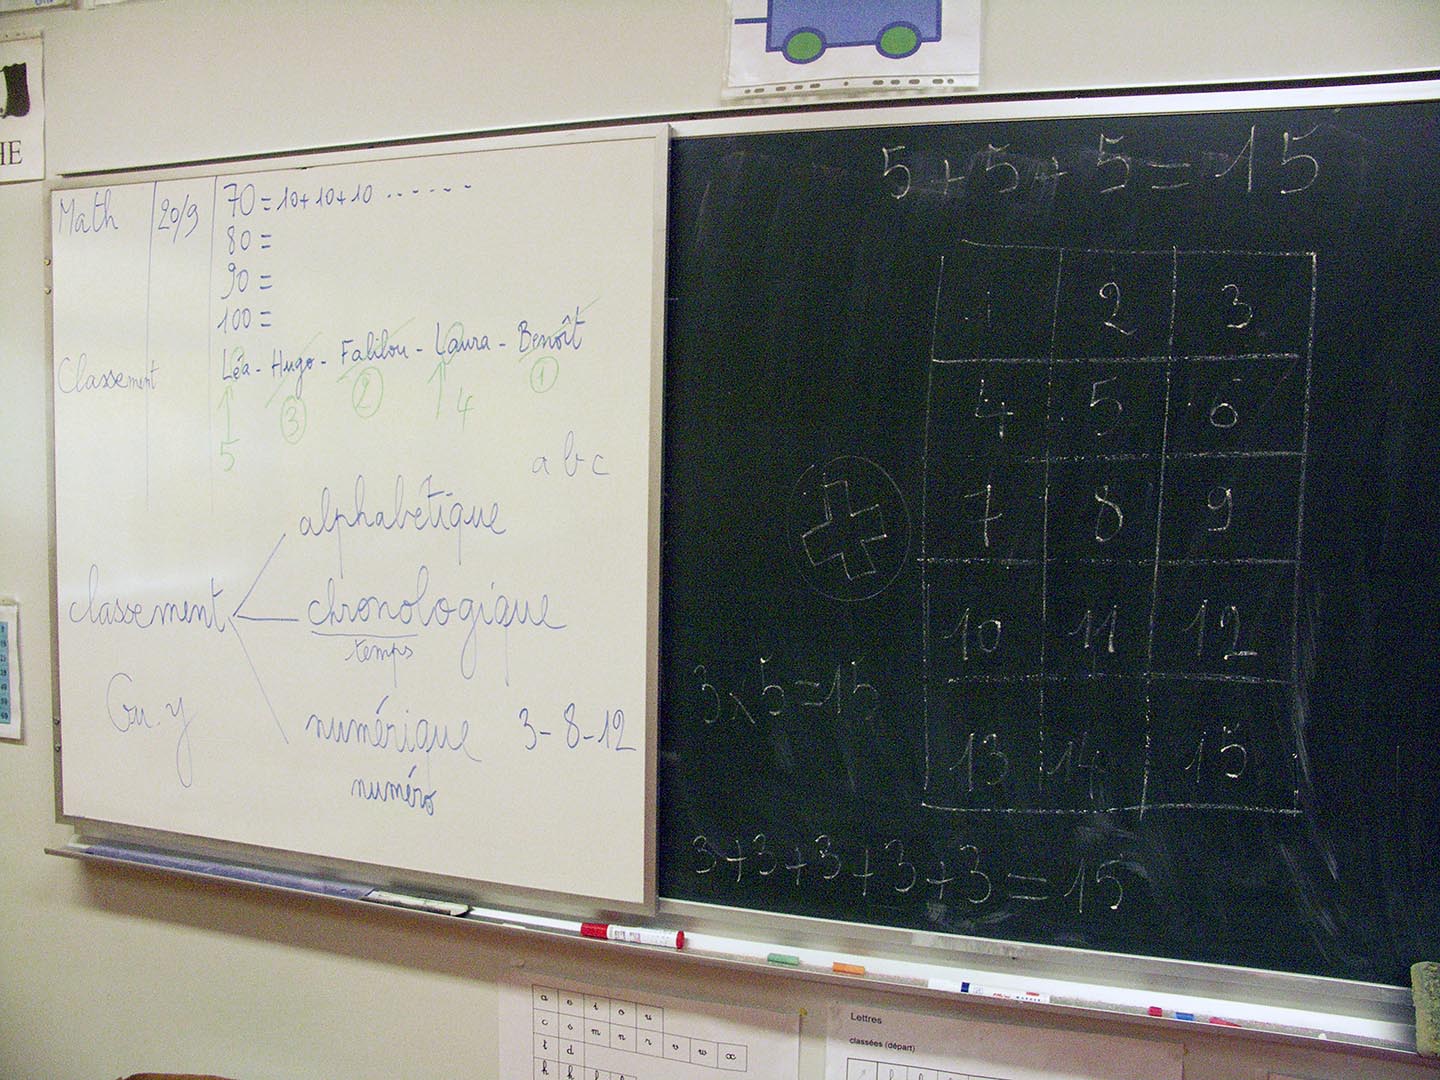 Math 20/9 70 = 10+10+10 ......
80 =
90 =
100 =
Classement Léa - Hugo - Falilou - Laura - Benoît
5 3 2 4 1
a b c
alphabétique
classement chronologique
temps
numérique 3-8-12
numéro
5+5+5=15
1 2 3
4 5 6
7 8 9
10 11 12
3x5=15
13 14 15
3+3+3+3+3=15
a e i o u
c o m n r v w x
l d
Lettres
classées (départ)